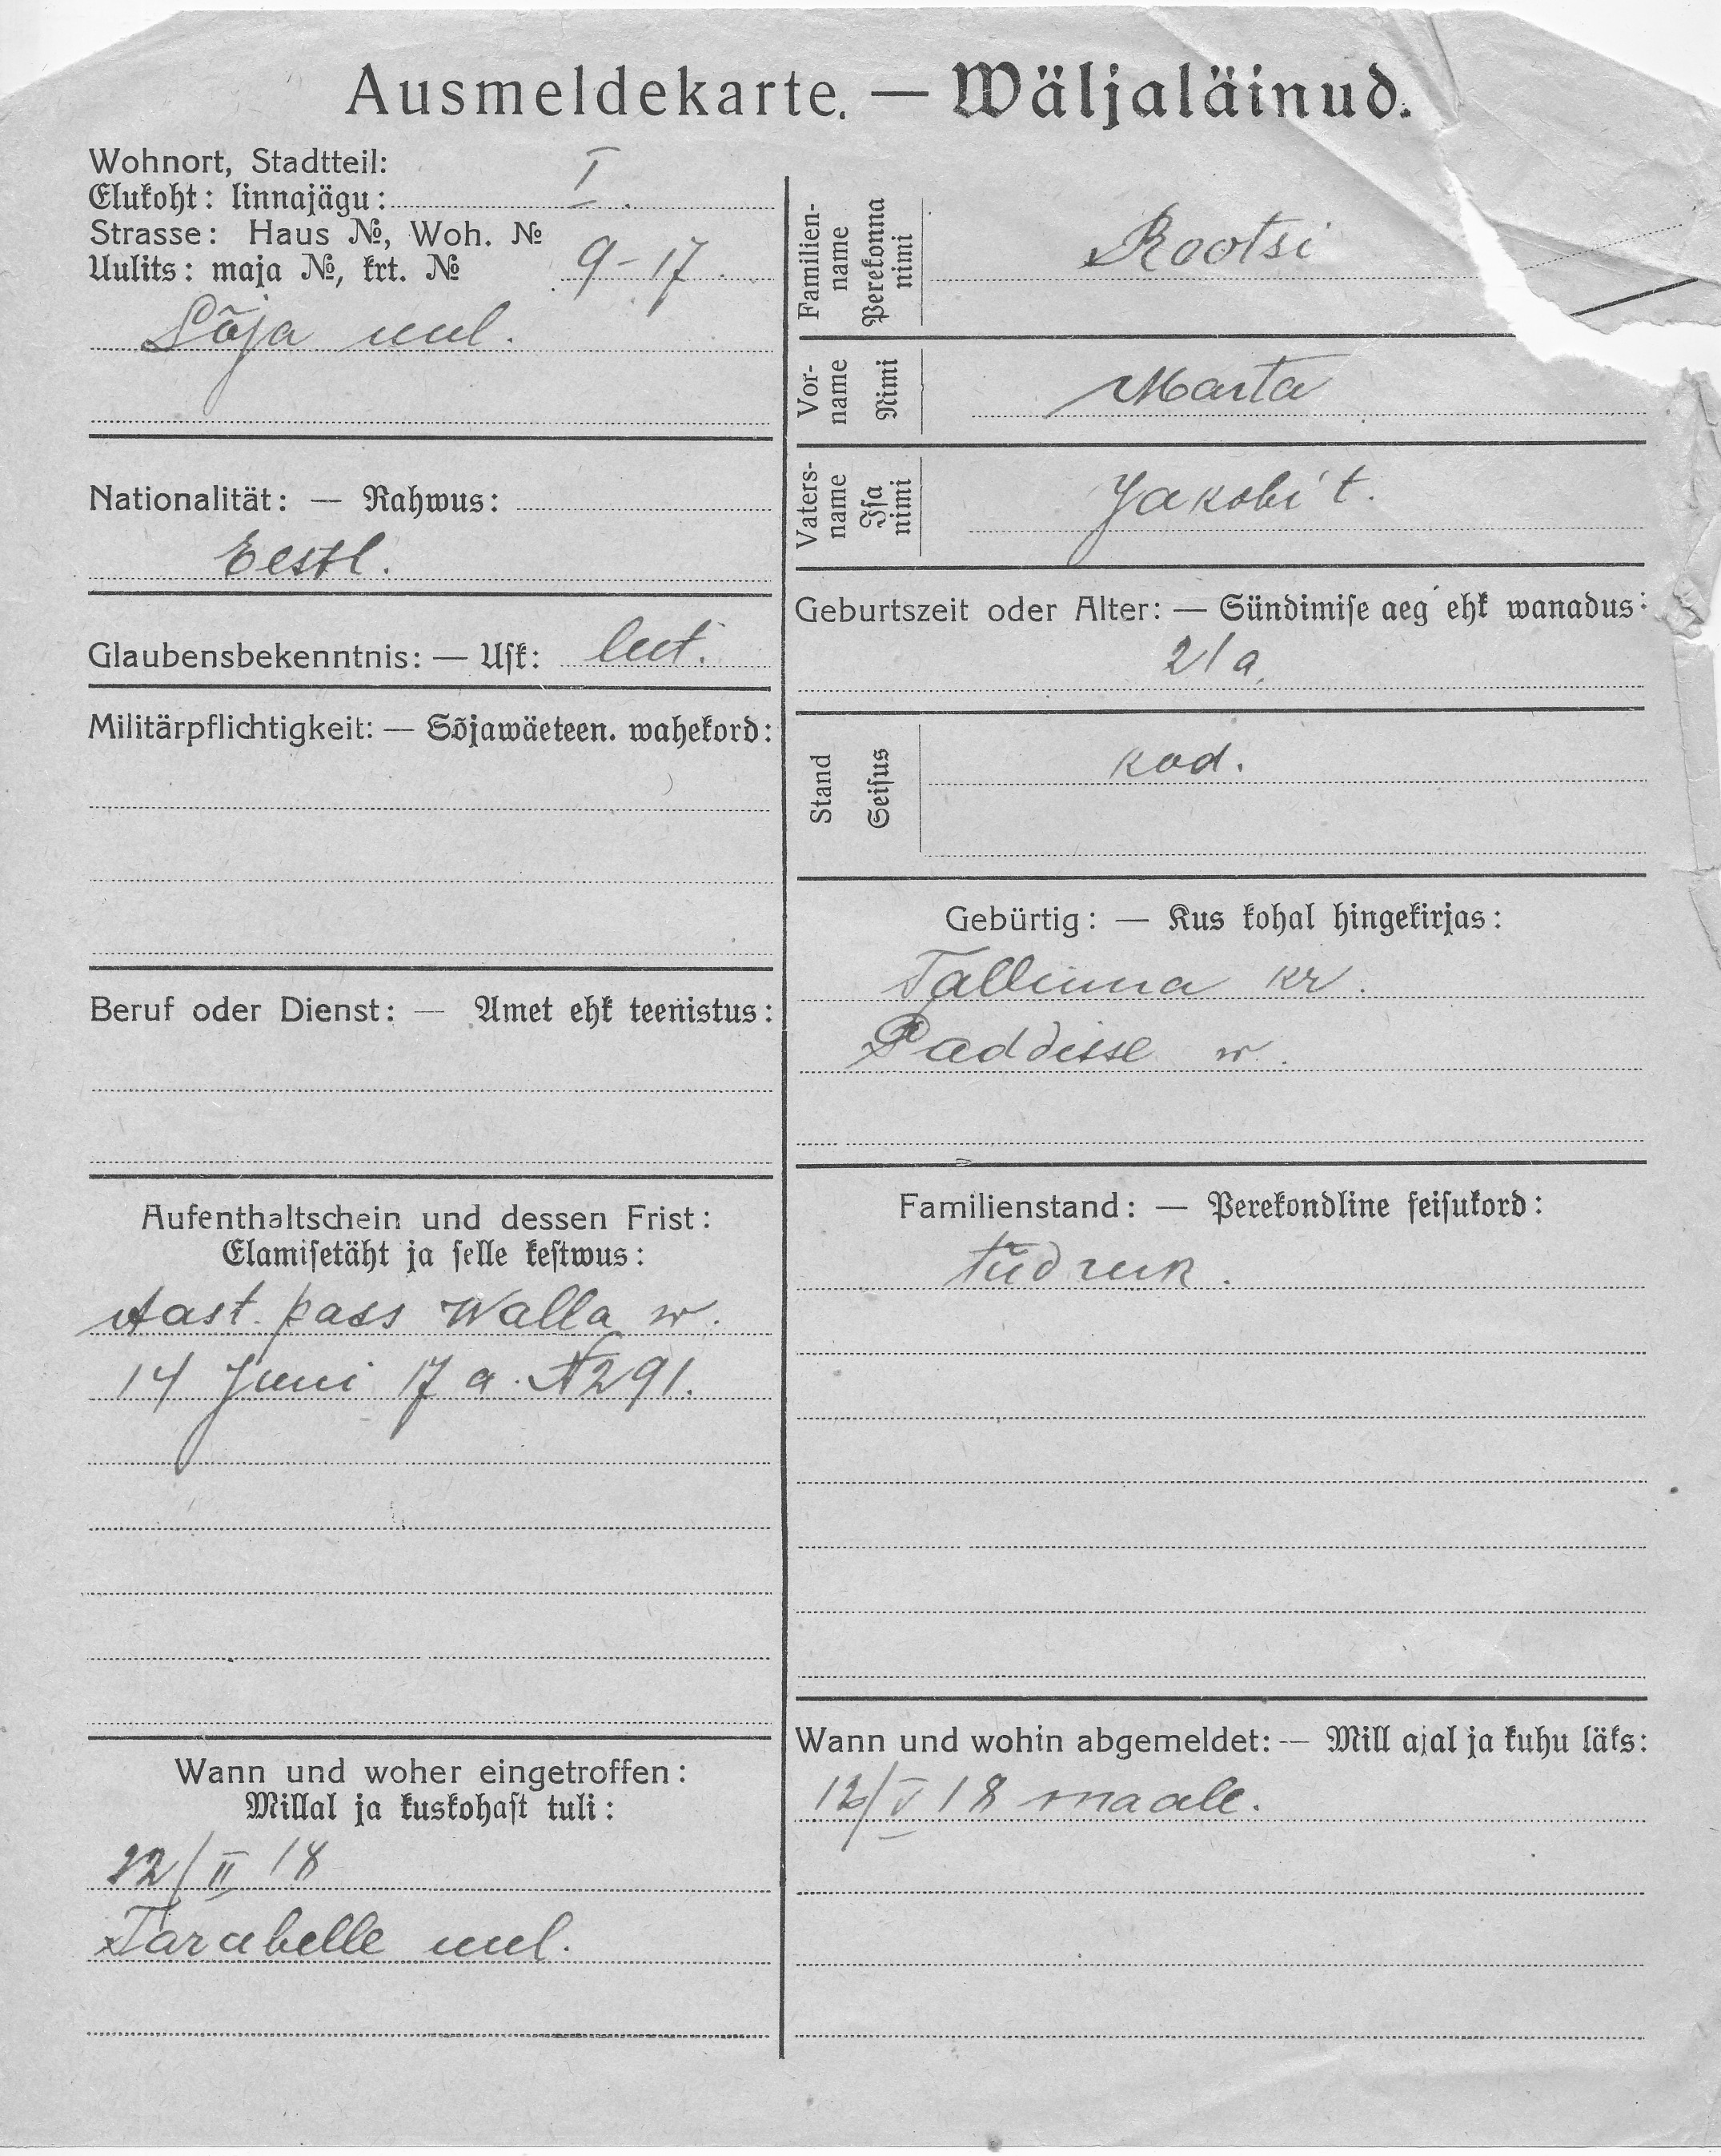 Ausmeldekarte. — Wäljaläinud.
Wohnort, Stadtteil:
Elukoht: linnajägu: I.
Strasse: Haus №, Woh. №
Uulits: maja №, krt. № 9-17.
Sõja uul.
Nationalität: — Rahwus:
Eestl.
Glaubensbekenntnis: — Usk: lut.
Militärpflichtigkeit: — Sõjawäeteen. wahekord:
Beruf oder Dienst: — Amet ehk teenistus:
Aufenthaltschein und dessen Frist:
Elamisetäht ja selle kestwus:
Aast. pass Walla w.
14 Juni 17 a. № 291.
Wann und woher eingetroffen:
Millal ja kuskohast tuli:
22/II 18
Tarabelle uul.
Familien-
name
Perekonna
nimi
Rootsi
Vor-
name
Nimi
Marta
Vaters-
name
Isa
nimi
Jakobi t.
Geburtszeit oder Alter: — Sündimise aeg ehk wanadus:
21 a.
Stand
Seisus
kod.
Gebürtig: — Kus kohal hingekirjas:
Tallinna kr.
Paddisse w.
Familienstand: — Perekondline seisukord:
tüdruk.
Wann und wohin abgemeldet: — Mill ajal ja kuhu läks:
/V 18 maale.